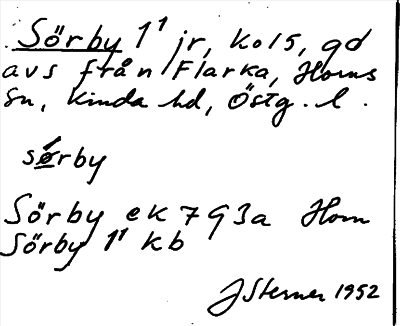 Sörby 1¹ jr, ko15, gd
avs från Flarka, Horns
sn, Kinda hd, Östg. l.
sørby
Sörby ek 7 G 3a Horn
Sörby 1¹ kb
J Sterner 1952